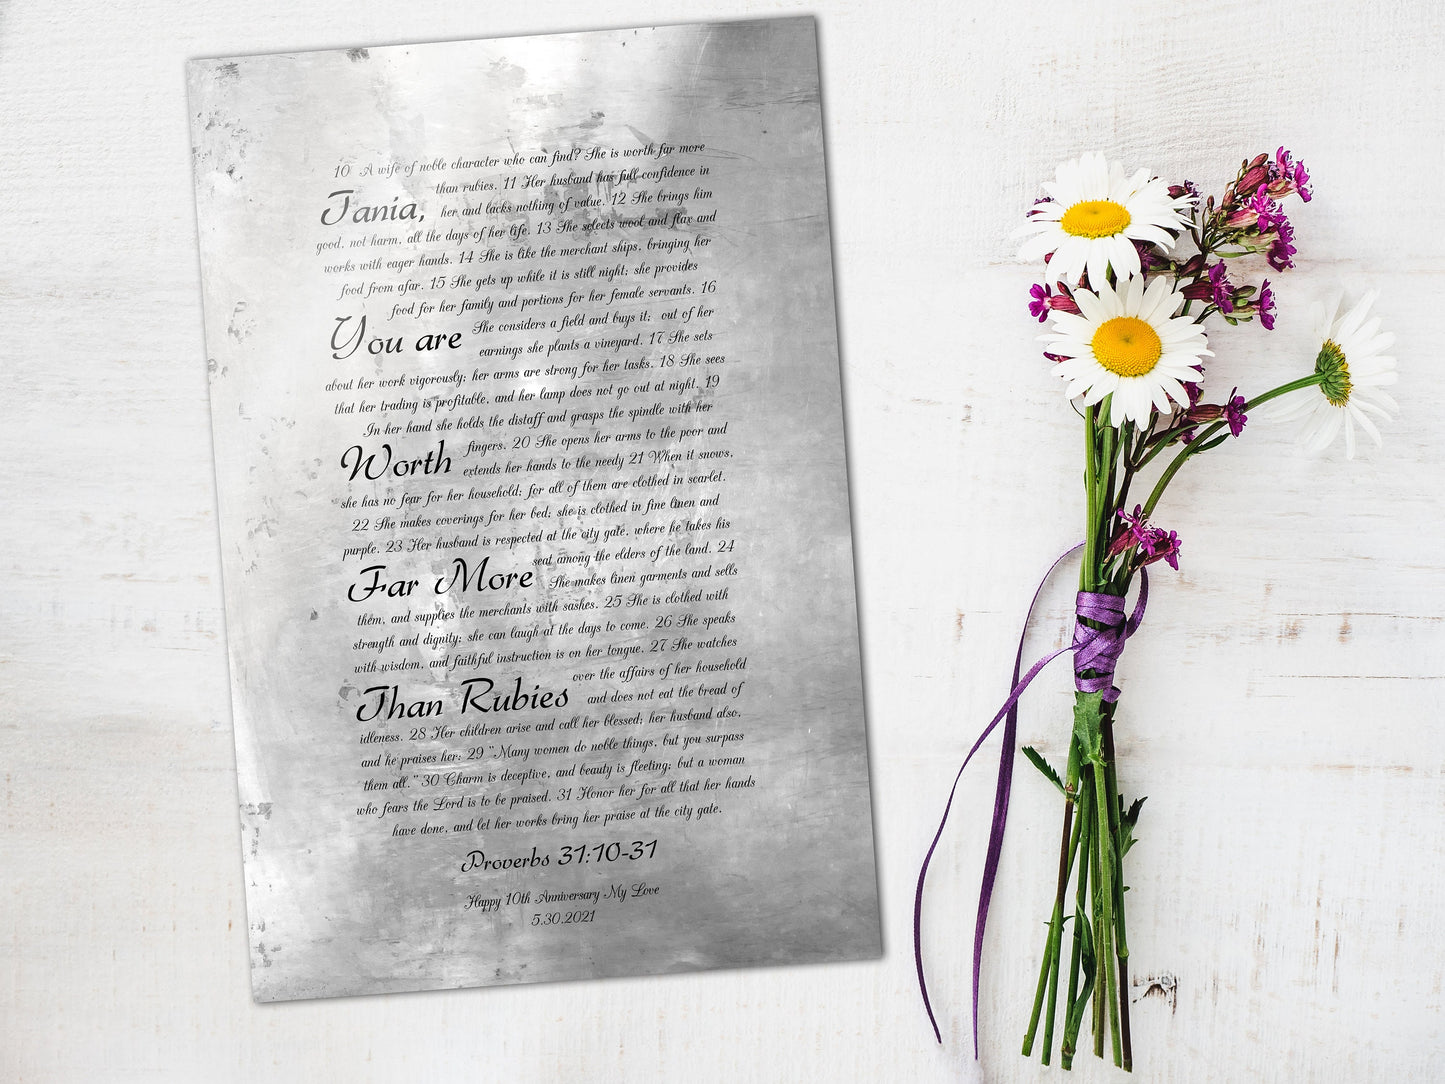 10 A wife of noble character who can find? She is worth far more
than rubies. 11 Her husband has full confidence in
Tania, her and lacks nothing of value. 12 She brings him
good, not harm, all the days of her life. 13 She selects wool and flax and
works with eager hands. 14 She is like the merchant ships, bringing her
food from afar. 15 She gets up while it is still night; she provides
food for her family and portions for her female servants. 16
You are She considers a field and buys it; out of her
earnings she plants a vineyard. 17 She sets
about her work vigorously; her arms are strong for her tasks. 18 She sees
that her trading is profitable, and her lamp does not go out at night. 19
In her hand she holds the distaff and grasps the spindle with her
Worth fingers. 20 She opens her arms to the poor and
extends her hands to the needy 21 When it snows,
she has no fear for her household; for all of them are clothed in scarlet.
22 She makes coverings for her bed; she is clothed in fine linen and
purple. 23 Her husband is respected at the city gate, where he takes his
seat among the elders of the land. 24
Far More She makes linen garments and sells
them, and supplies the merchants with sashes. 25 She is clothed with
strength and dignity; she can laugh at the days to come. 26 She speaks
with wisdom, and faithful instruction is on her tongue. 27 She watches
over the affairs of her household
Than Rubies and does not eat the bread of
idleness. 28 Her children arise and call her blessed; her husband also,
and he praises her: 29 "Many women do noble things, but you surpass
them all." 30 Charm is deceptive, and beauty is fleeting; but a woman
who fears the Lord is to be praised. 31 Honor her for all that her hands
have done, and let her works bring her praise at the city gate.
Proverbs 31:10-31
Happy 10th Anniversary My Love
5.30.2021